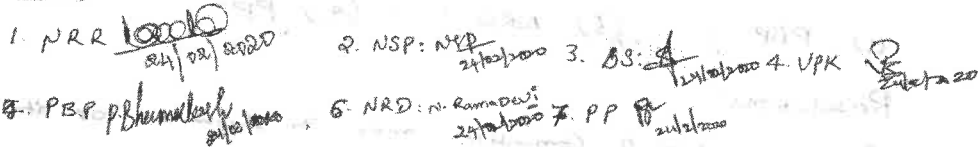 1. NRR 24/02/2020 2. NSP: NSP 24/02/2020 3. BS: 24/02/2020 4. VPK
5. PBP 24/02/2020, 6. NRD: N. Rama Devi 24/02/2020 7. PP 24/2/2020